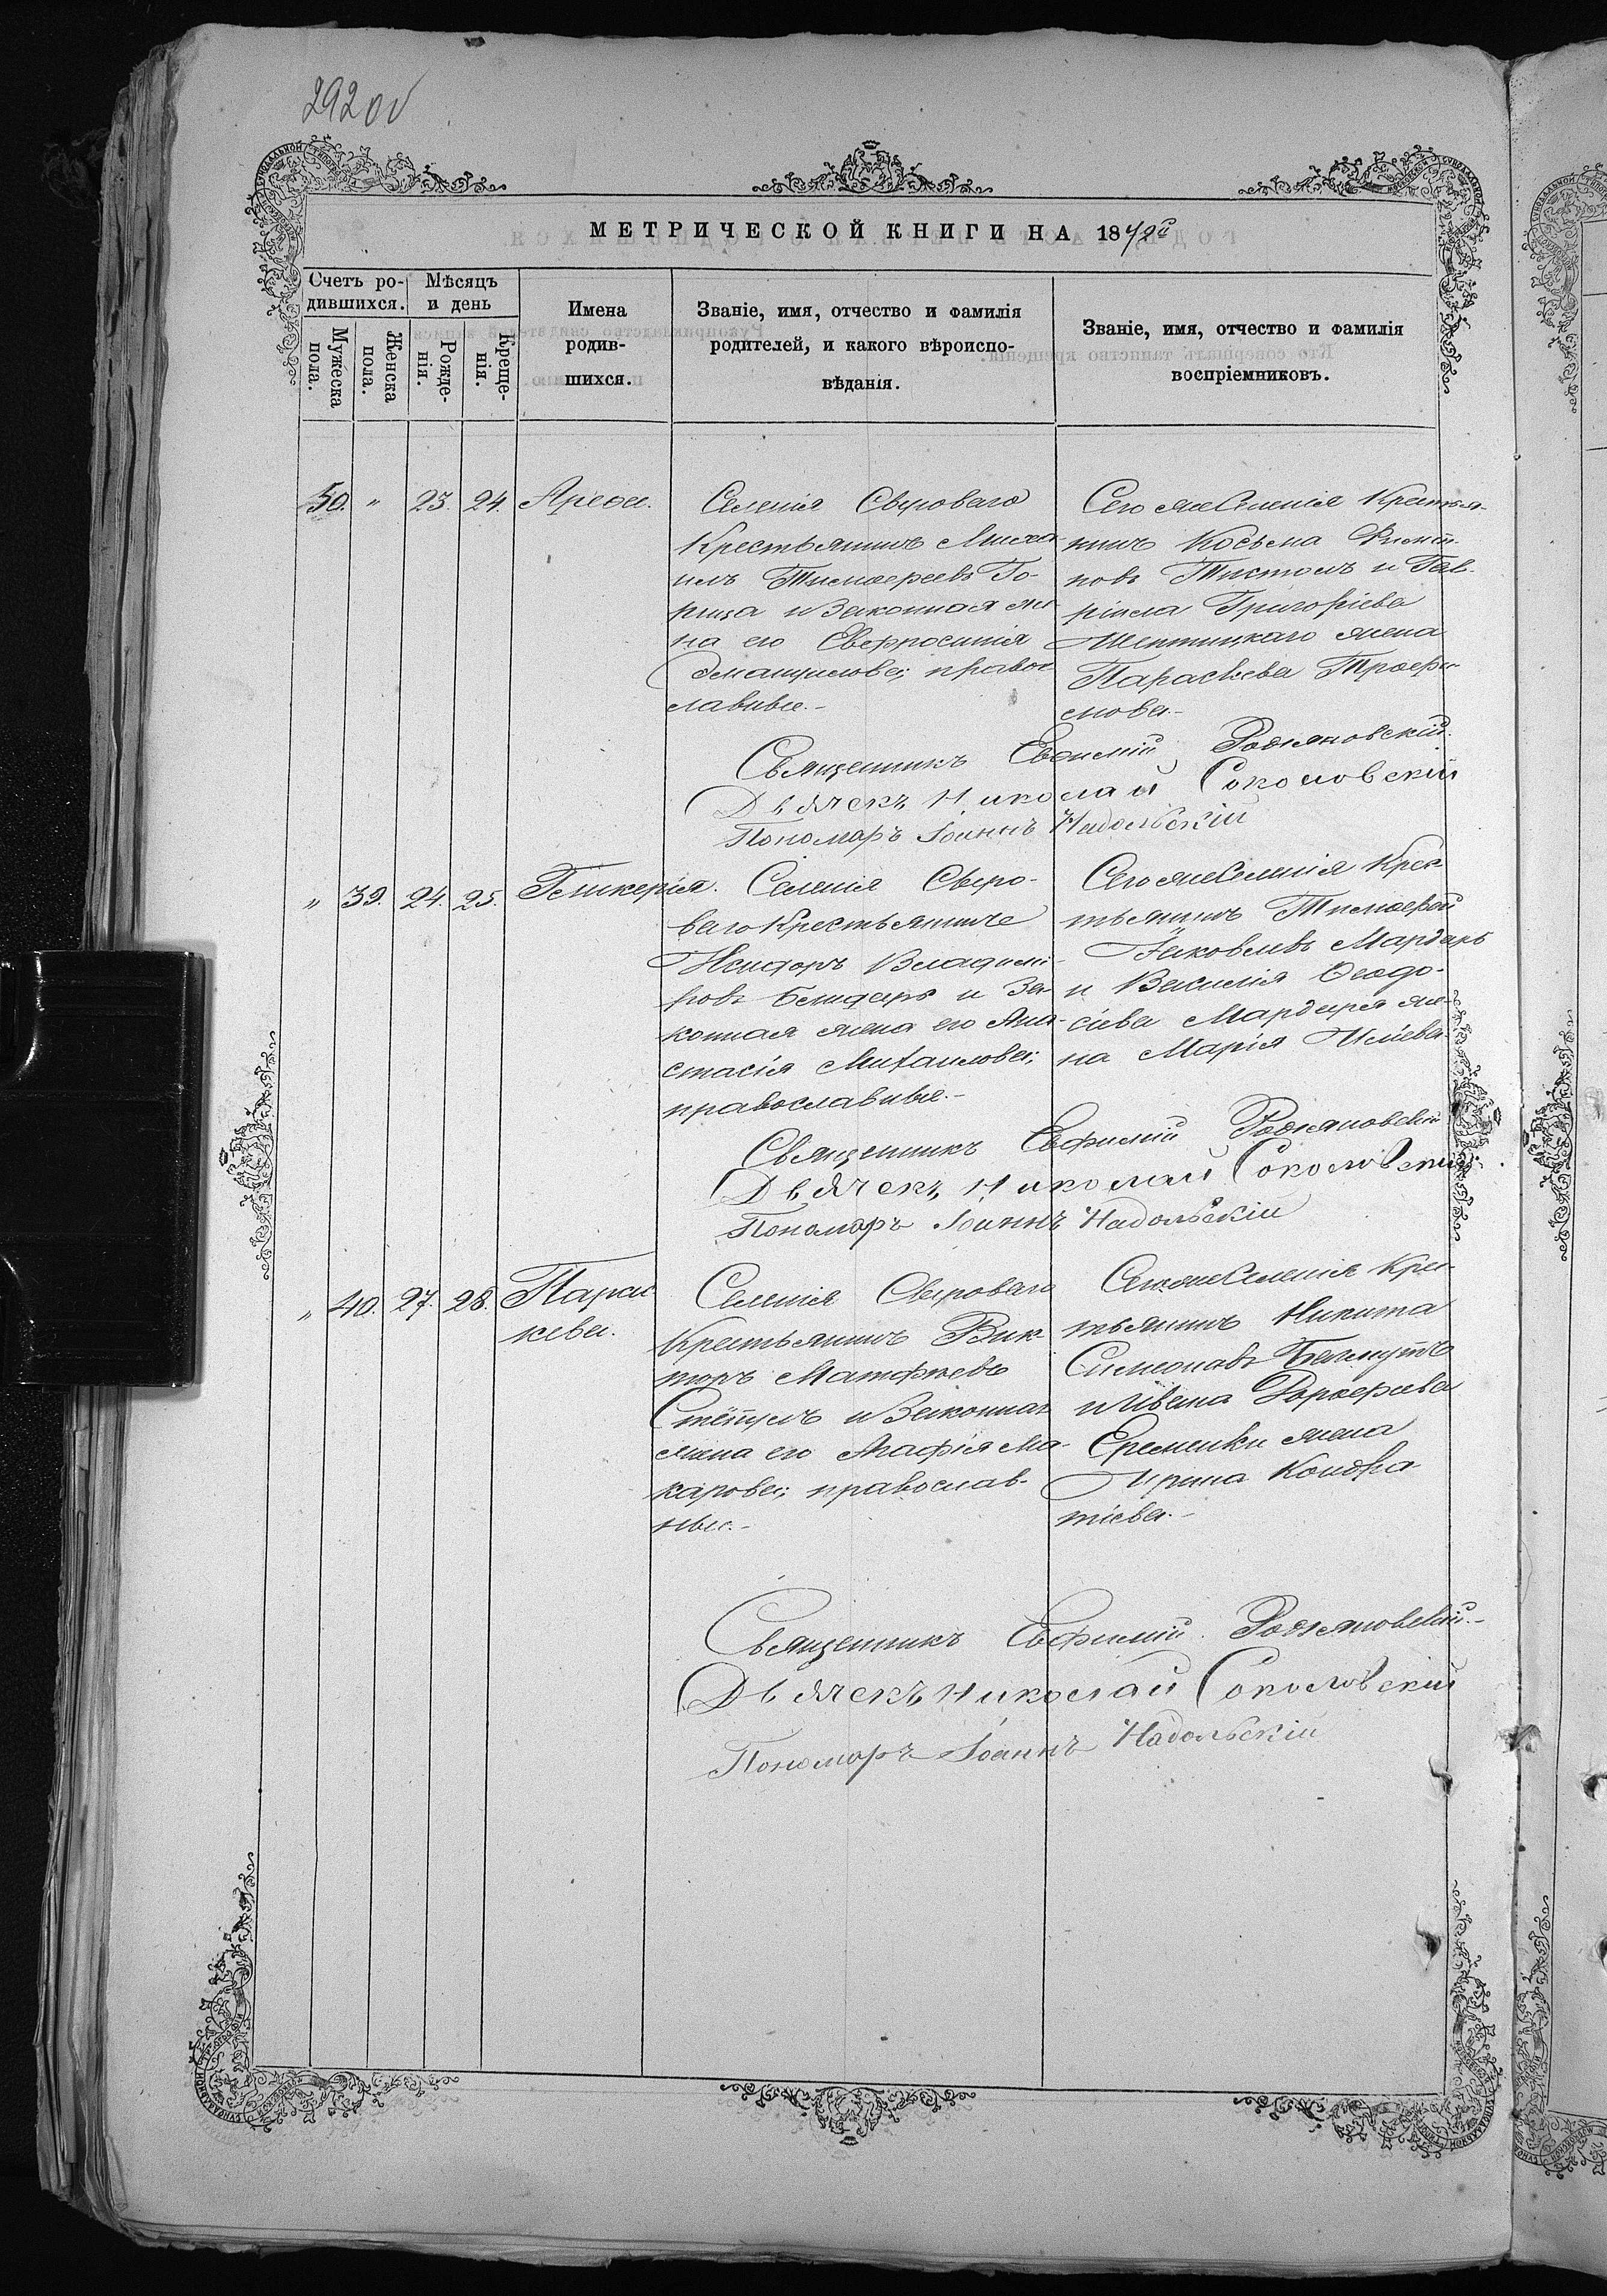 292 об
МЕТРИЧЕСКОЙ КНИГИ НА 18
Счетъ ро-
дившихся.
Мѣсяцъ
и день
Мужеска
пола.
Женска
пола.
Рожде-
нія.
Креще-
нія.
Имена
родив-
шихся.
Званіе, имя, отчество и фамилія
родителей, и какого вѣроиспо-
вѣданія.
Званіе, имя, отчество и фамилія
воспріемниковъ.
50. " 23. 24. Арефа.
Селенія
Крестьянинъ Миха
илъ Тимофеевъ Го-
и Законная же-
на его Евфросинія
правос
лавные.-
Сего же Селенія Крестья-
нинъ Косьма
новъ и Гав-
ріила Григоріева
жена
Параскева Трофи-
мова.-
Священникъ Евфимій
Дьячекъ Николай Соколовскій
Пономарь Іоаннъ Надольскій
" 39. 24. 25. Гликерія.
Селенія
ваго Крестьянинъ
Исидоръ Владими-
ровъ и За-
конная жена его Ана-
стасія Михаилова;
православные.-
Сего же Селенія Крес
тьянинъ Тимофей
Іаковлевъ Мардарь
и Василія Ѳеодо-
сіева Мардаря же-
на Марія Иліева.
Священникъ Евфимій
Дьячекъ Николай Соколовскій
Пономарь Іоаннъ Надольскій
" 40. 27. 28. Парас
кева.
Селенія
Крестьянинъ Вик-
торъ Матфіевъ
и Законная
жена его Агафія Ма-
карова; православ-
ные.-
Сего же Селенія Крес-
тьянинъ Никита
Симеоновъ
и Ивана
Еременки жена
Ирина Кондра-
тіева.-
Священникъ Евфимій
Дьячекъ Николай Соколовскій
Пономарь Іоаннъ Надольскій